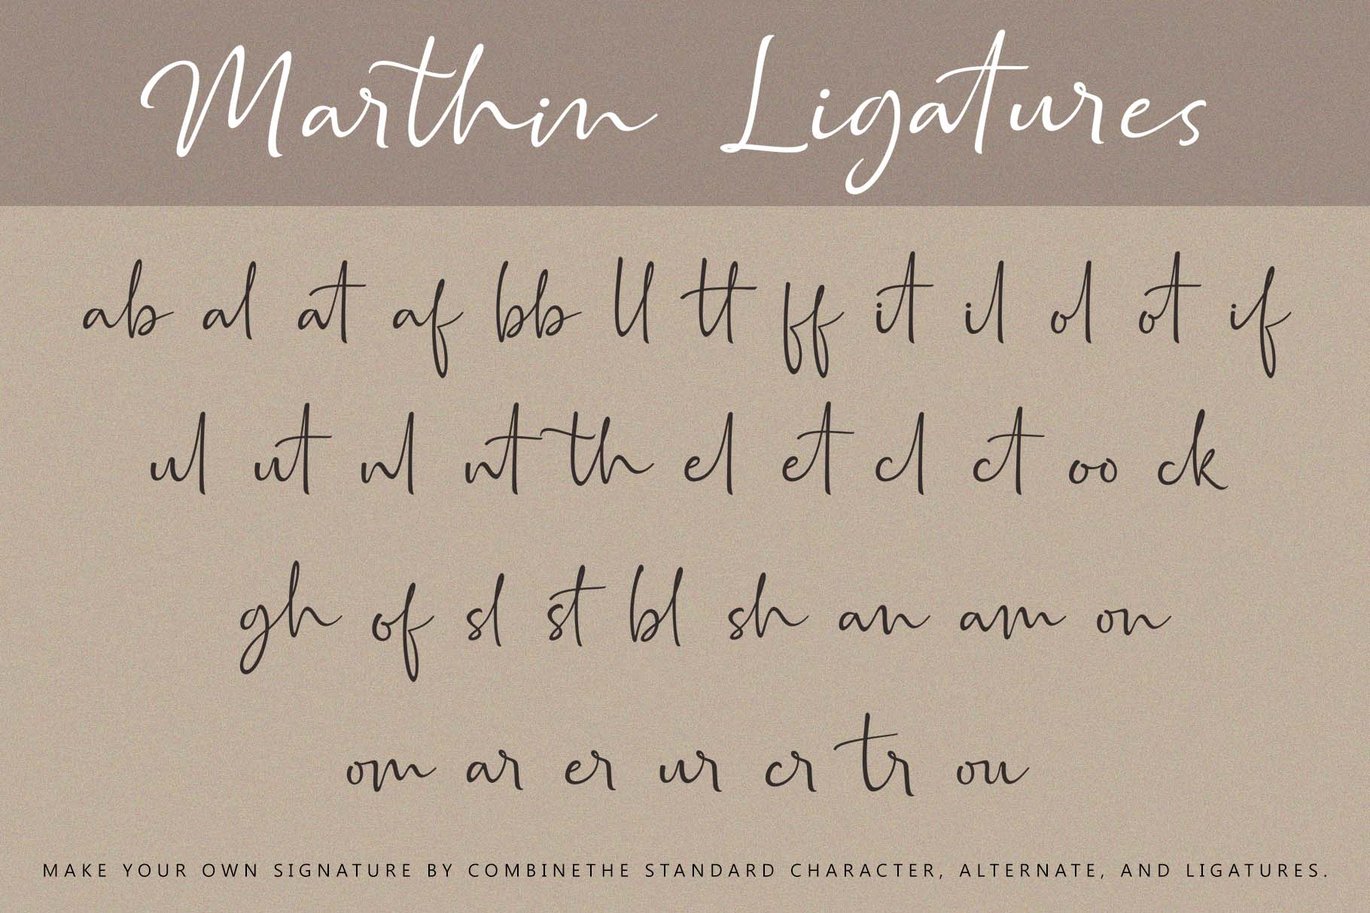 Marthin Ligatures
ab al at af bb ll tt ff it il ol ot if
ul ut nl nt th el et cl ct oo ck
gh of sl st bl sh an am on
om ar er ur cr tr ou
MAKE YOUR OWN SIGNATURE BY COMBINETHE STANDARD CHARACTER, ALTERNATE, AND LIGATURES.